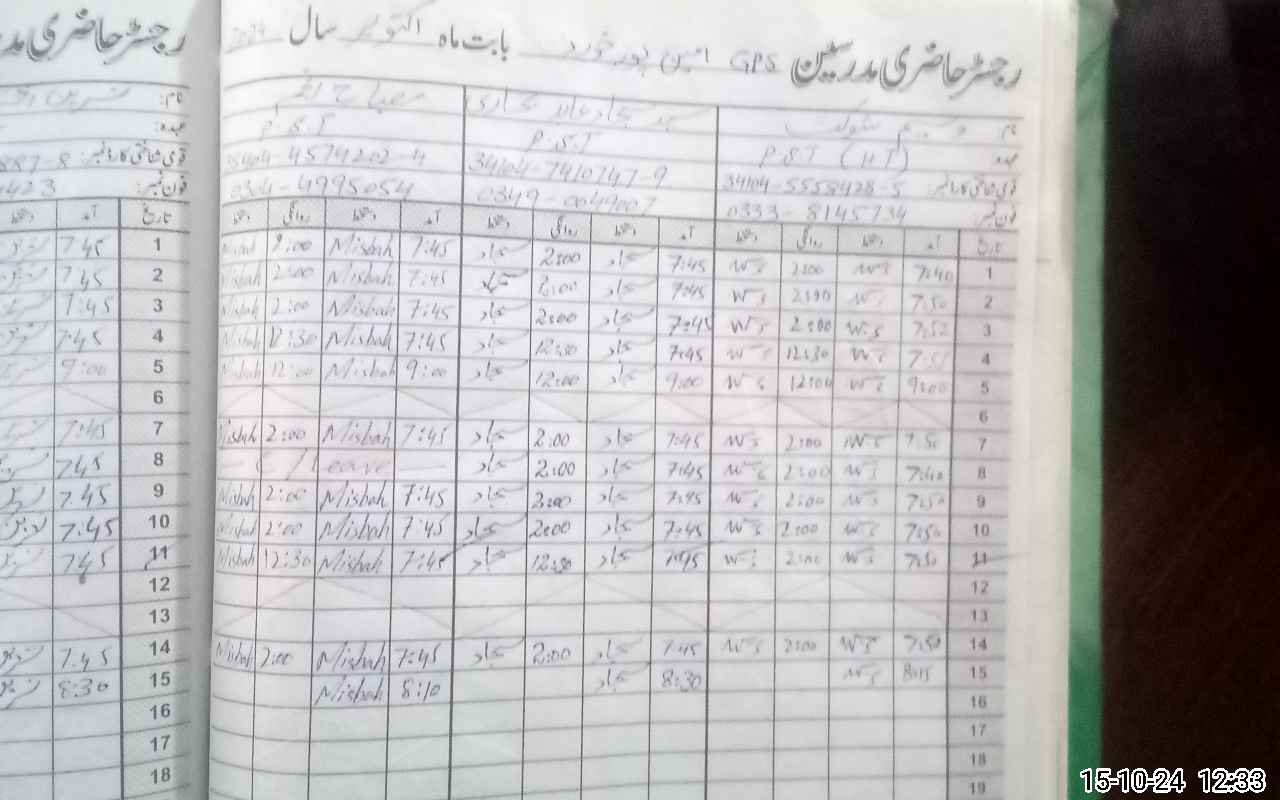 رجسٹر حاضری مدرسین GPS امین پور خورد بابت ماہ اکتوبر سال 2024
نام وسیم شوکت
P.S.T (HT)
قومی شناختی کارڈ نمبر: 34104-5558428-5
فون نمبر: 0333-8145734
سید سجاد بخاری
P.S.T
34104-7410747-9
0349-0049007
مصباح
P.S.T
4574202-4
0304-4995054
تاریخ آمد دستخط روانگی دستخط آمد دستخط روانگی دستخط آمد دستخط روانگی دستخط
1 7:40 W S 2:00 W S 7:45 سجاد 2:00 سجاد 7:45 Misbah 2:00 Misbah
2 7:50 W S 2:00 W S 7:45 سجاد 2:00 سجاد 7:45 Misbah 2:00 Misbah
3 7:52 W S 2:00 W S 7:45 سجاد 2:00 سجاد 7:45 Misbah 2:00 Misbah
4 W S 12:30 W S 7:45 سجاد 12:30 سجاد 7:45 Misbah 12:30 Misbah
5 9:00 W S 12:00 W S 9:00 سجاد 12:00 سجاد 9:00 Misbah 12:00 Misbah
6
7 7:50 W S 2:00 W S 7:45 سجاد 2:00 سجاد 7:45 Misbah 2:00 Misbah
8 7:40 W S 2:00 W S 7:45 سجاد 2:00 سجاد C / Leave
9 7:50 W S 2:00 W S 7:45 سجاد 2:00 سجاد 7:45 Misbah 2:00 Misbah
10 7:50 W S 2:00 W S 7:45 سجاد 2:00 سجاد 7:45 Misbah 2:00 Misbah
11 7:50 W S 2:00 W S 7:45 سجاد 12:30 سجاد 7:45 Misbah 12:30 Misbah
12
13
14 7:50 W S 2:00 W S 7:45 سجاد 2:00 سجاد 7:45 Misbah 2:00 Misbah
15 8:15 W S 8:30 سجاد 8:10 Misbah
16
17
18
19
رجسٹر حاضری مدر
نام: نسرین
عہدہ:
قومی شناختی کارڈ نمبر: 887-8
فون نمبر: 423
تاریخ آمد دستخط
1 7:45
2 7:45
3 7:45
4 7:45
5 9:00
6
7 7:45
8 7:45
9 7:45
10 7:45
11 7:45
12
13
14 7:45
15 8:30
16
17
18
15-10-24 12:33